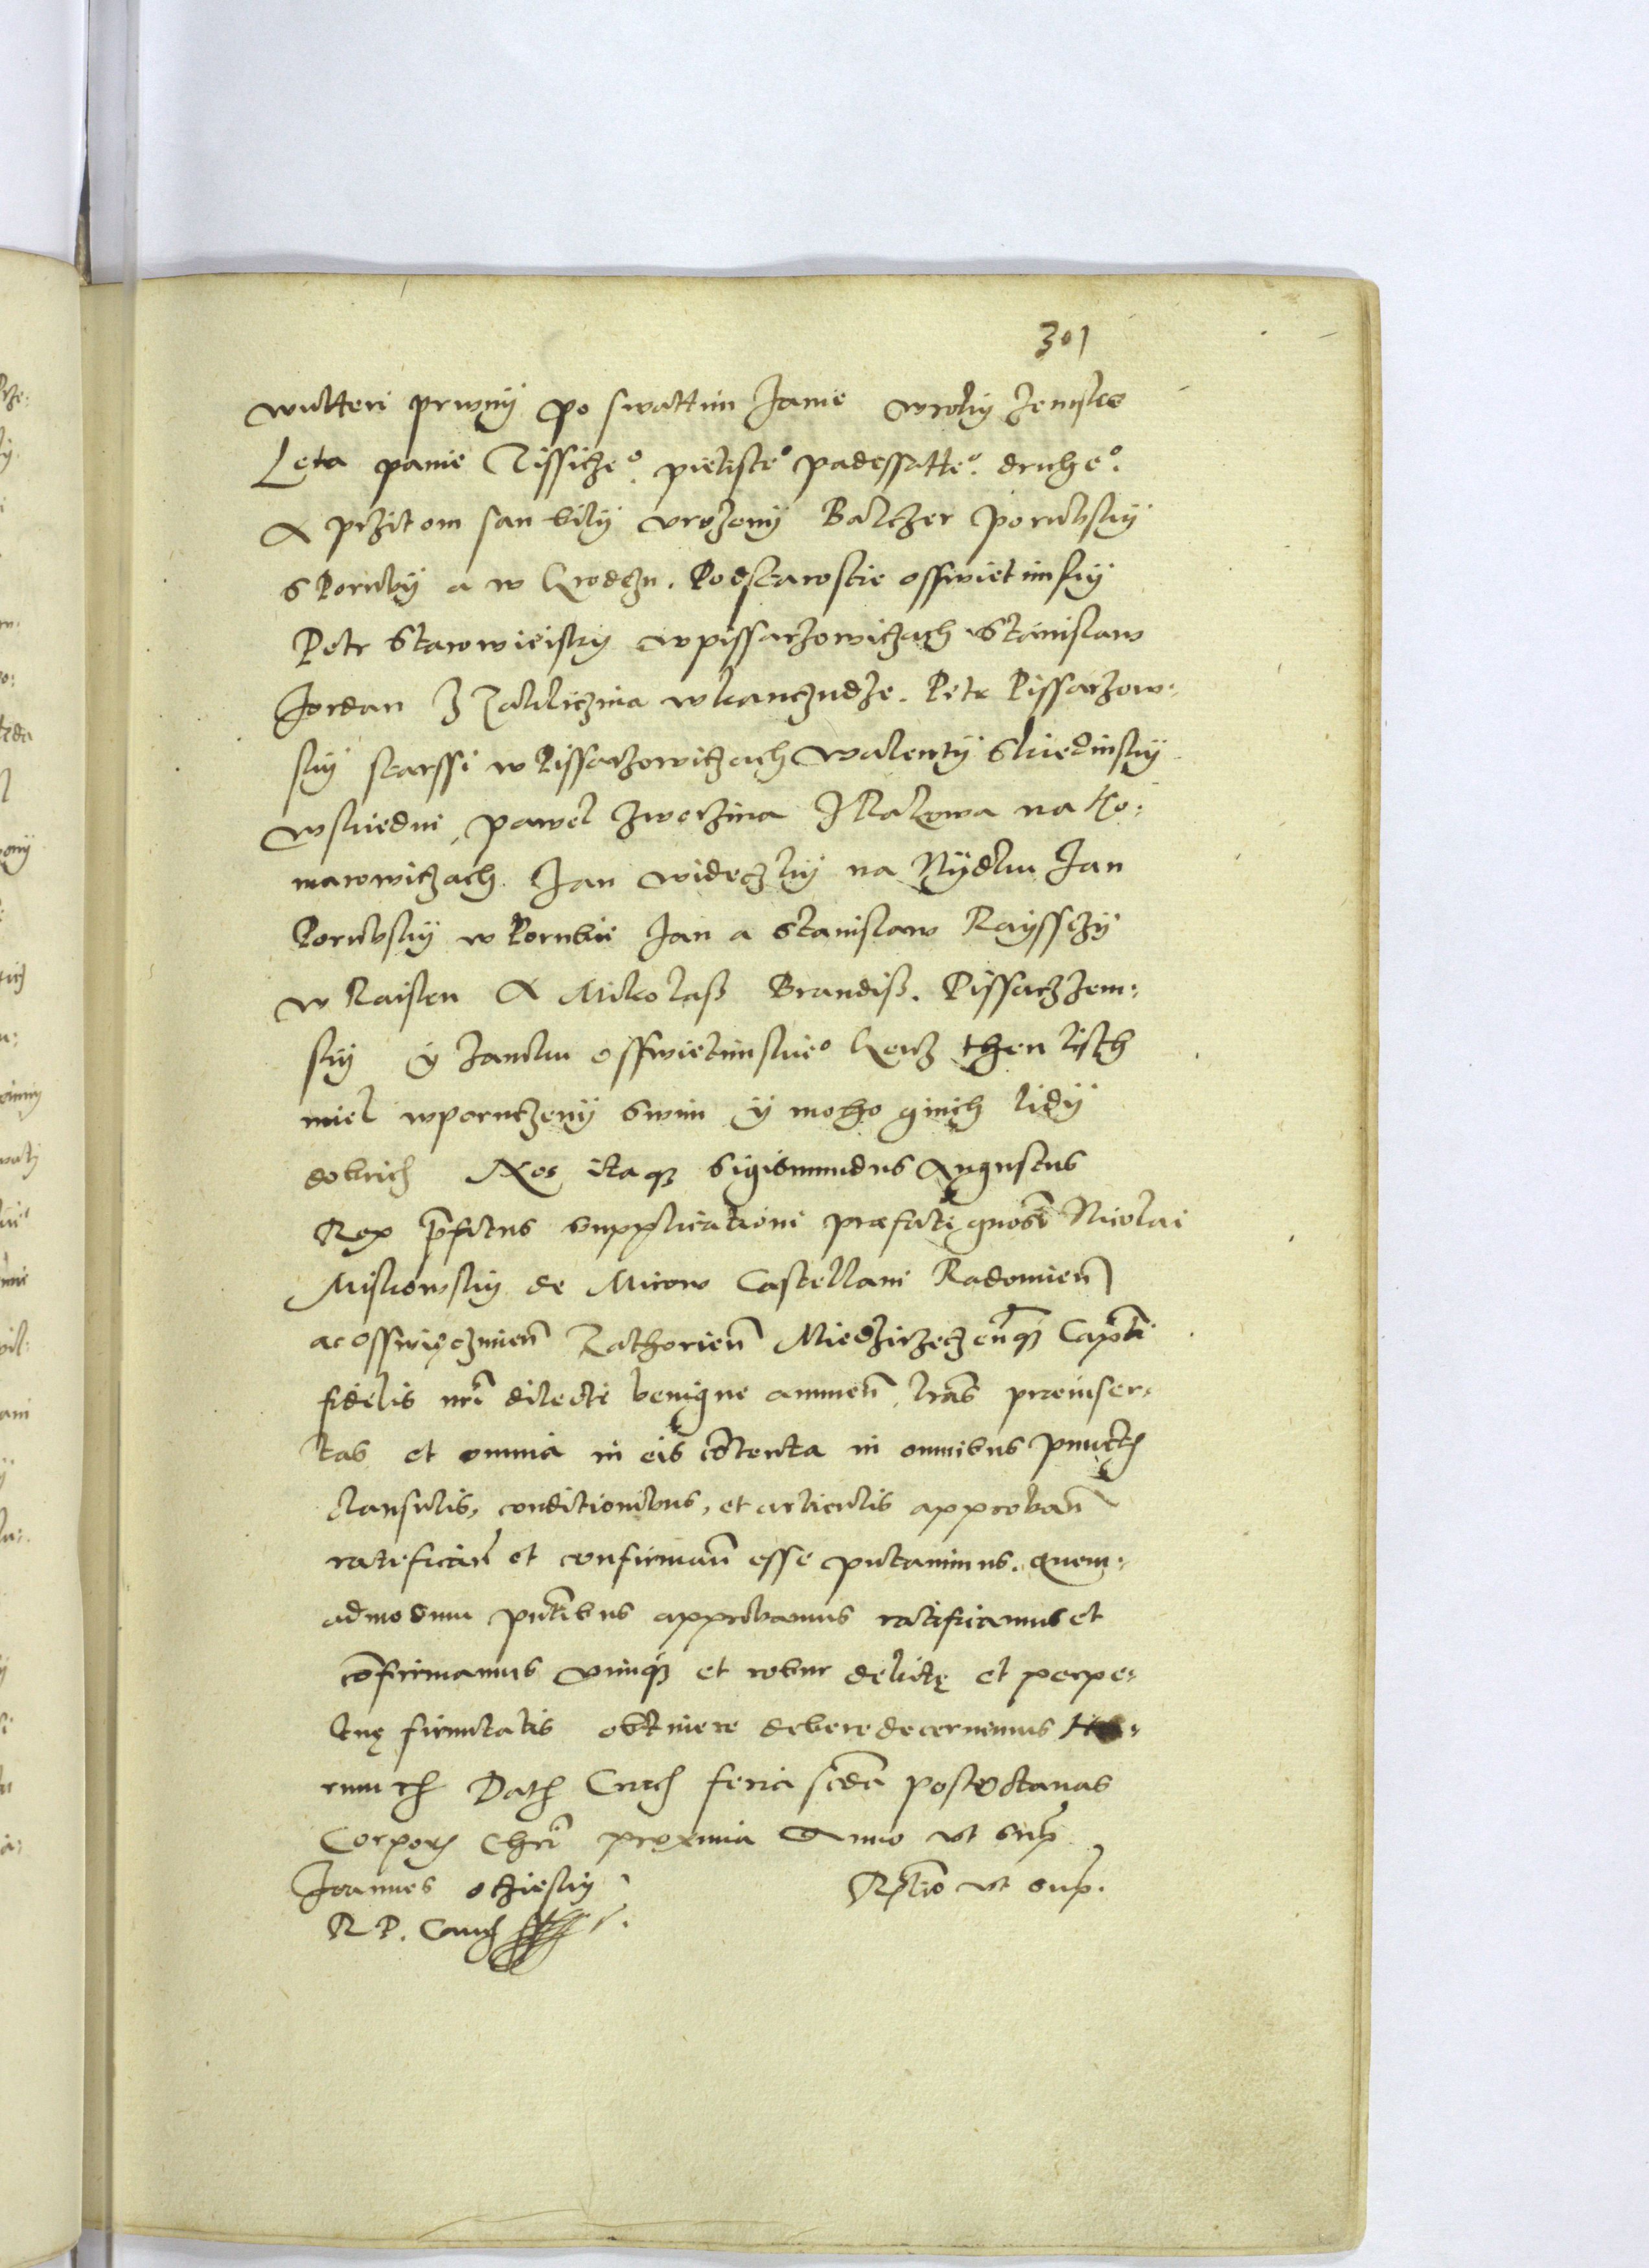 301
wutteri prwnij po swattim Janie wroky zemske
Leta panie Tissicze° pietiste° padessatte° druhe°
A przitom san bily vrozenij Baltzer Porubskij
s Poruby a w Grodczu. Podstaroscie osswietimskij
Petr Starowieiskij w pissarzowiczach Stanislaw
Jordan z Zakliczina w kanczudze. Petr Pissarzow:
skij starssi w Pissarzowiczach Walentij Skiedinskij
w skiedni, Pawel Zwerzina z Rakowa na Ko:
marowiczach. Jan wideczkij na Nÿdku Jan
Porubskij w Porubie Jan a Stanislaw Raysschÿ
w Raisku A Mikolass Brandiss. Pissarz zem:
skij ÿ zamku osswietimskie° kerz then listh
miel wporuczenij swim ÿ moho ginich lidÿ
dobrich Nos itaq3 Sigismundus Augustus
Rex p̃fatus supplicationi præfati gnosi Nicolai
Miskowskij de Mirow Castellani Radomien̄
ac osswięczimien̄ Zathorien̄ Miedzirzeczen̄q3 Capt̃i
fidelis nr̃i dilecti benigne annuen̄ lr̃as præinser:
tas et omnia in eis cōtenta in omnibus punctis
clausulis, conditionibus, et articulis approban̄
ratifican̄ et confirman̄ esse putauimus. quem:
admodum pn̄tibus approbamus ratificamus et
cōfirmamus vimq3 et robur debitę et perpe:
tuę firmitatis obtinere debere decernimus Ha:
rum etc Dat Crac feria scd̃a post octauas
Corporis Chri proxima Anno vt supr
Joannes oczieskij Rl̃tio vt supr.
R P. Canc